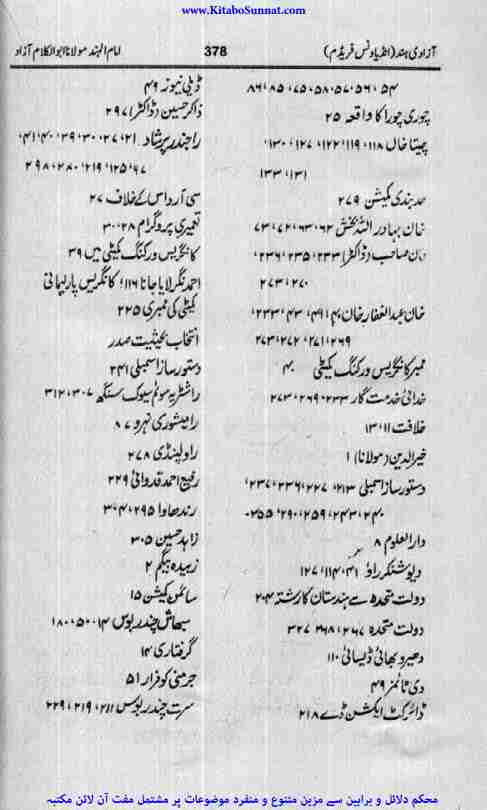 www.KitaboSunnat.com
آزادی ہند (انڈیا ونس فریڈم) 378 امام الہند مولانا ابوالکلام آزاد
۵۴، ۵۶، ۵۷، ۵۸، ۷۵، ۸۵، ۸۶
چوری چورا کا واقعہ ۲۵
چیتا خاں ۱۱۸، ۱۱۹، ۱۲۲، ۱۲۷، ۱۳۰،
۱۳۱، ۱۳۳
حد بندی کمیشن ۲۷۹
خان بہادر اللہ بخش ۶۲، ۶۳، ۷۲، ۷۳
خان صاحب (ڈاکٹر) ۲۳۳، ۲۳۵، ۲۳۶،
۲۷۰، ۲۷۳
خان عبدالغفار خان ۴۰، ۴۱، ۴۳، ۲۳۳،
۲۶۹، ۲۷۱، ۲۷۲، ۲۷۳
ممبر کانگریس ورکنگ کمیٹی ۴۰
خدائی خدمت گار ۲۳۳، ۲۶۹، ۲۷۳
خلافت ۱۱، ۱۳
خیرالدین (مولانا) ۱
دستور ساز اسمبلی ۲۱۳، ۲۲۷، ۲۳۶، ۲۳۷،
۲۴۰، ۲۴۳، ۲۵۹، ۲۹۰، ۳۵۵
دارالعلوم ۸
دیو شنکر راؤ ۴۱، ۱۱۴، ۱۲۷
دولت متحدہ سے ہندستان کا رشتہ ۲۰۴
دولت متحدہ ۲۶۷، ۲۶۸، ۳۲۷
دھیرو بھائی ڈیسائی ۱۱۰
دی ٹائمز ۴۹
ڈائرکٹ ایکشن ڈے ۲۱۸
ڈیلی نیوز ۴۹
ذاکر حسین (ڈاکٹر) ۲۹۷
راجندر پرشاد ۲۱، ۲۷، ۳۰، ۳۹، ۴۰، ۴۱،
۶۷، ۱۲۵، ۲۱۹، ۲۸۰، ۲۹۸
سی آر داس کے خلاف ۲۷
تعمیری پروگرام ۲۸، ۳۰
کانگریس ورکنگ کمیٹی میں ۳۹
احمد نگر لایا جانا ۱۱۶، کانگریس پارلیمانی
کمیٹی کی ممبری ۲۲۵
انتخاب بحیثیت صدر
دستور ساز اسمبلی ۲۴۱
راشٹریہ سوئم سیوک سنگھ ۳۰۷، ۳۱۲
رامیشوری نہرو ۸۷
راولپنڈی ۲۷۸
رفیع احمد قدوائی ۲۲۹
رندھاوا ۲۹۵، ۳۰۴
زاہد حسین ۳۰۵
زبیدہ بیگم ۲
سائمن کمیشن ۱۵
سبھاش چندر بوس ۱۴، ۵۰، ۱۸۰
گرفتاری ۱۴
جرمنی کو فرار ۵۱
سرت چندر بوس ۲۱۱، ۲۱۹، ۲۲۹
محکم دلائل و براہین سے مزین متنوع و منفرد موضوعات پر مشتمل مفت آن لائن مکتبہ